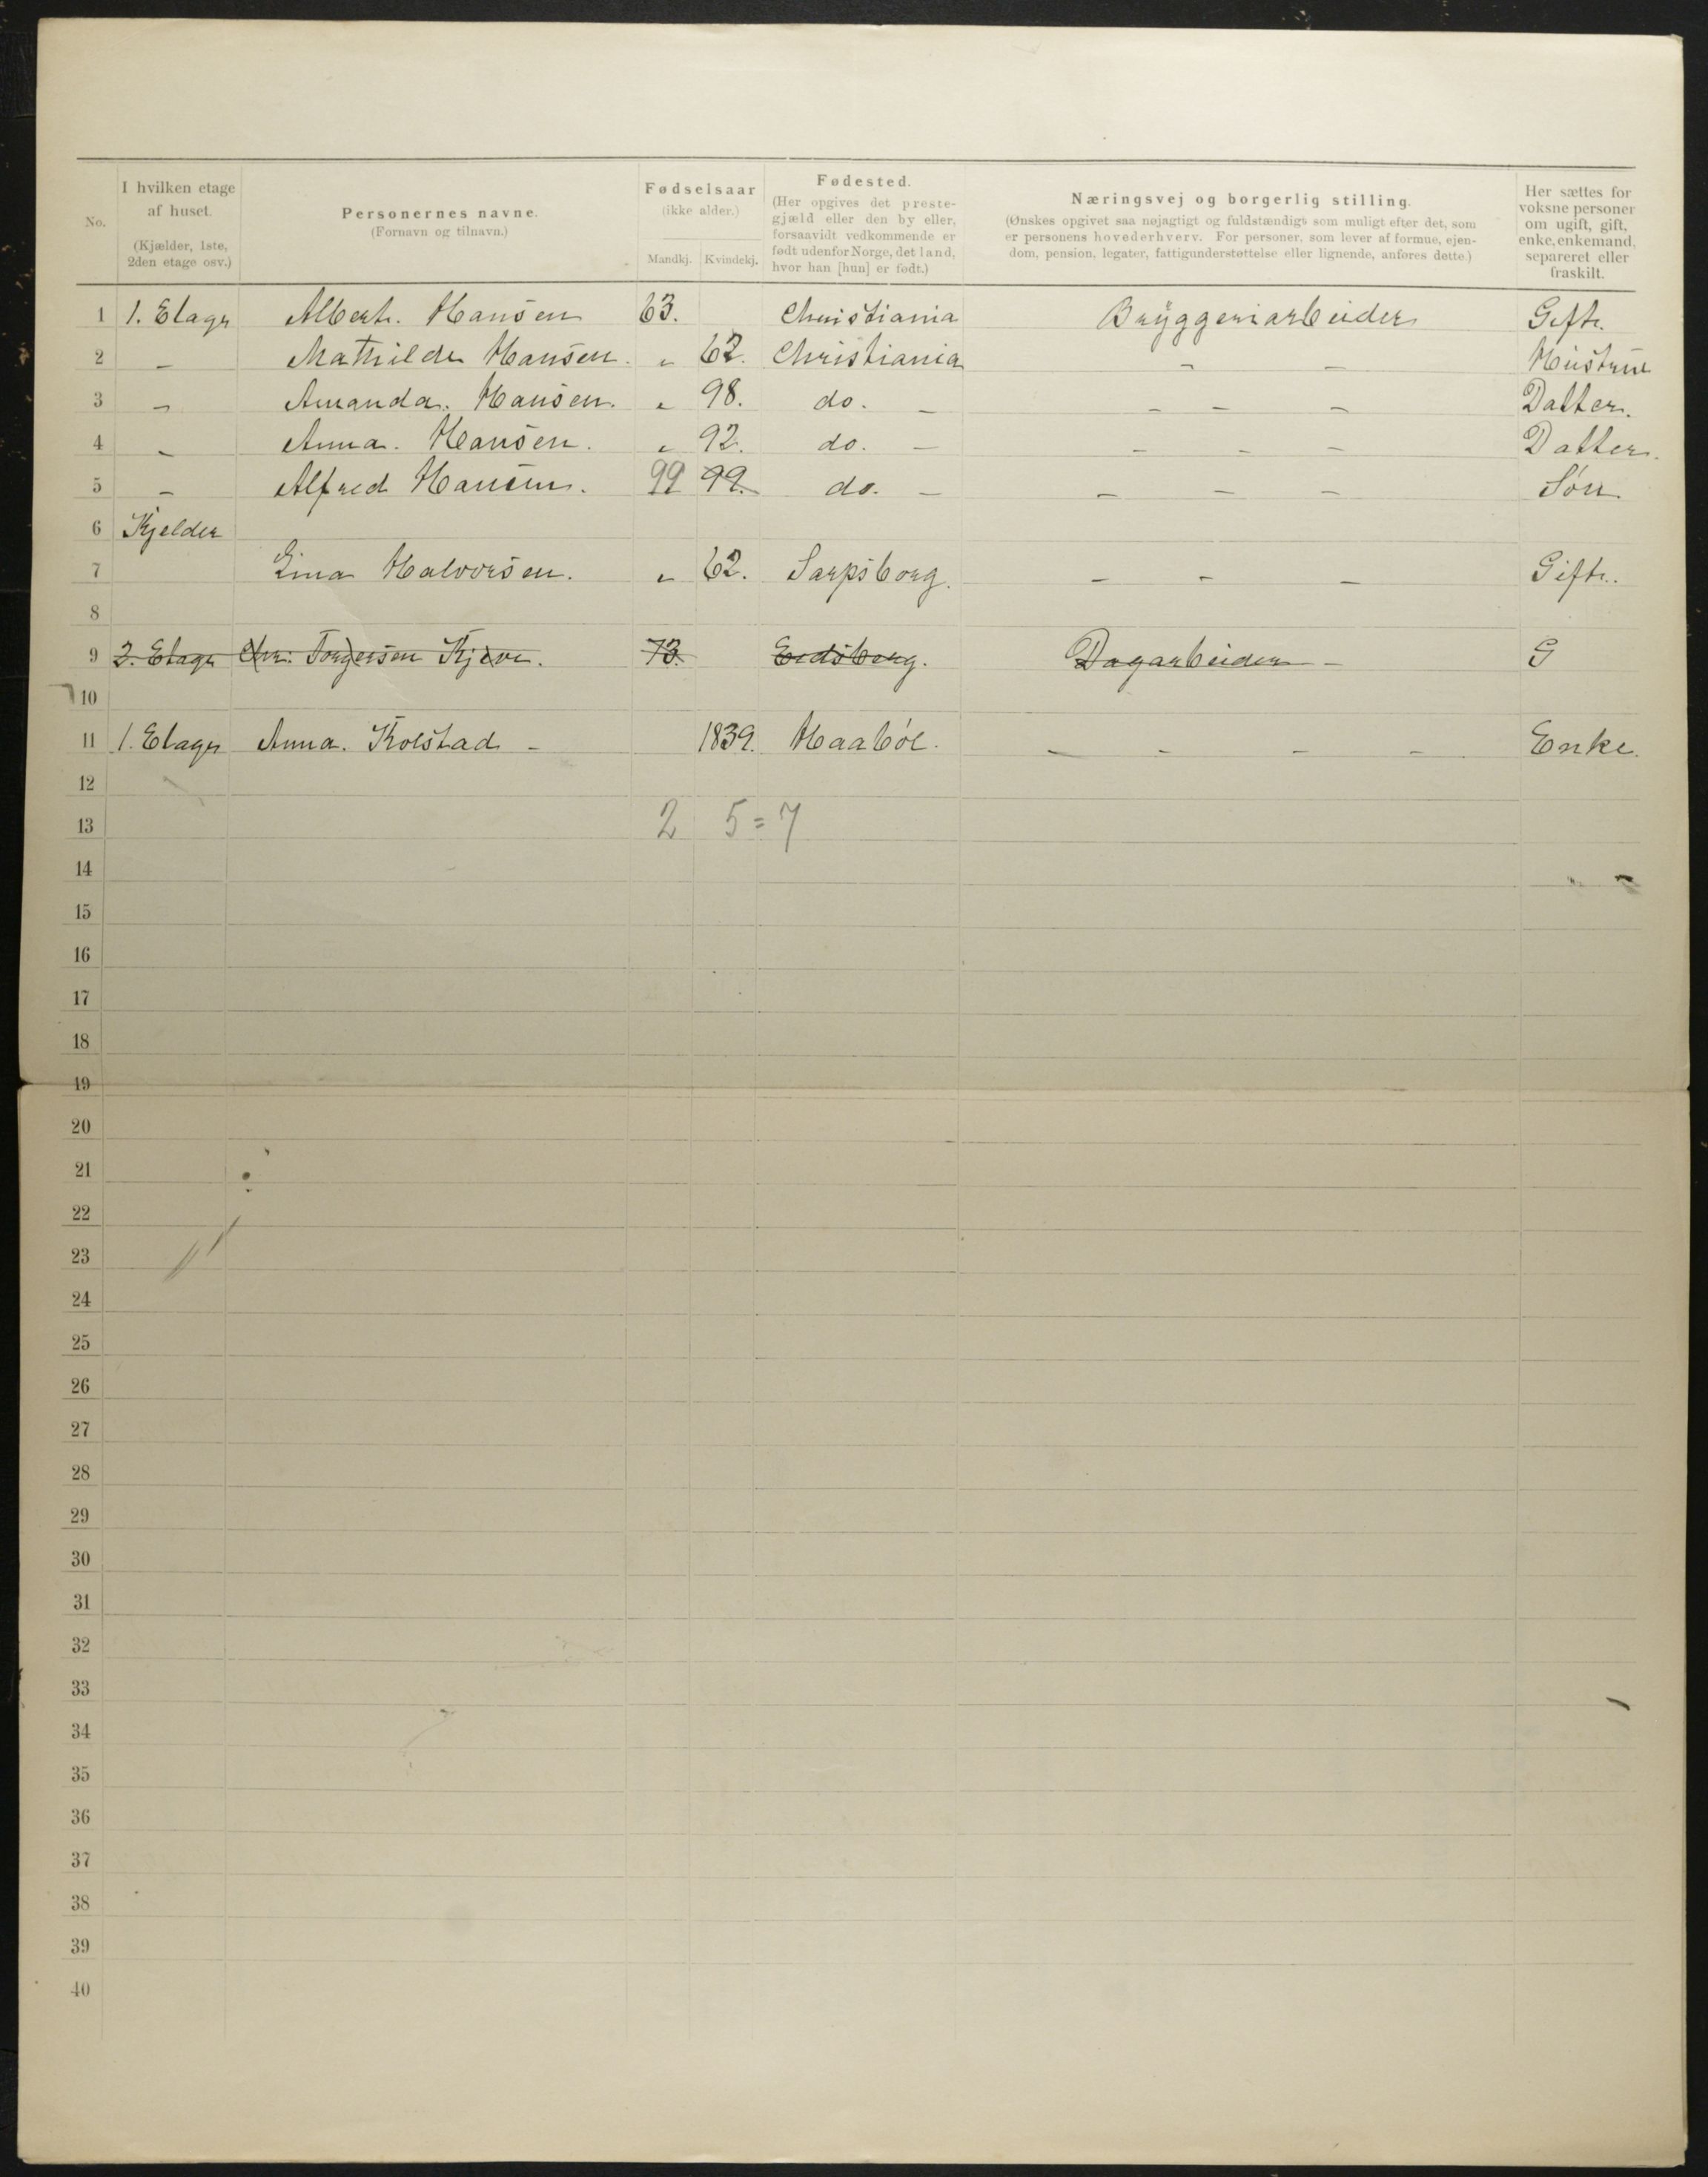 No.
I hvilken etage
af huset.
(Kjælder, 1ste,
2den etage osv.)
Personernes navne.
(Fornavn og tilnavn.)
Fødselsaar
(ikke alder.)
Mandkj. Kvindekj.
Fødested.
(Her opgives det preste-
gjæld eller den by eller,
forsaavidt vedkommende er
født udenfor Norge, det land,
hvor han [hun] er født.)
Næringsvej og borgerlig stilling.
(Ønskes opgivet saa nøjagtigt og fuldstændigt som muligt efter det, som
er personens hovederhverv. For personer, som lever af formue, ejen-
dom, pension, legater, fattigunderstøttelse eller lignende, anføres dette.)
Her sættes for
voksne personer
om ugift, gift,
enke, enkemand,
separeret eller
fraskilt.
1 1. Etage Albert. Hansen 63. Christiania Bryggeriarbeider Gift.
2 - Mathilde Hansen. " 62. Christiania - - Hustrue
3 - Amanda. Hansen. " 98. do. - - - - Datter.
4 - Anna. Hansen. " 92. do. - - - - Datter.
5 - Alfred Hansen. 99 99. do. - - - - Søn.
6 Kjelder
7 Halvorsen. " 62. Sarpsborg. - - - Gift.
8
9 2. Etage Chr: Torgersen 73. Eidsberg. Dagarbeider - G
10
11 1. Etage Anna. Kolstad - 1839. Haabøl. - - - - Enke.
12
13 2 5=7
14
15
16
17
18
19
20
21
22
23
24
25
26
27
28
29
30
31
32
33
34
35
36
37
38
39
40